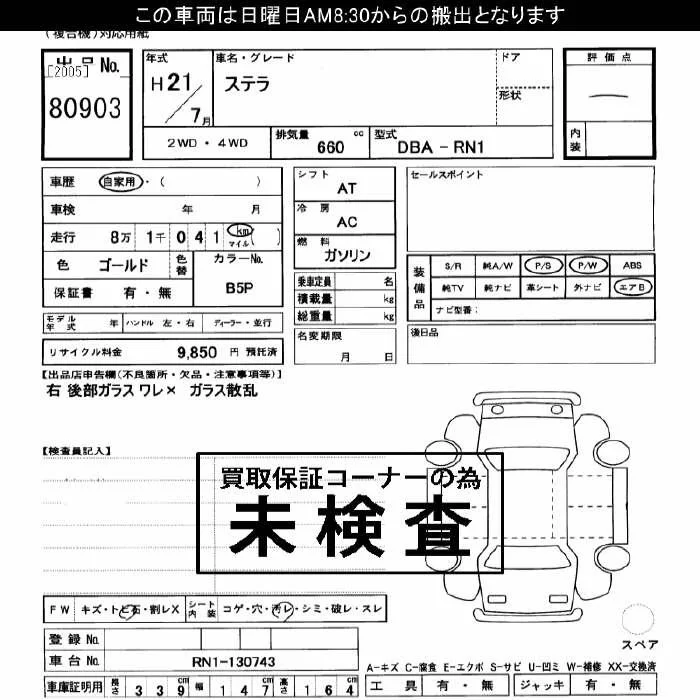 この車両は日曜日AM8:30からの搬出となります
(複合機)対応用紙
出品No.
[2005]
80903
年式
H21/7月
車名・グレード
ステラ
ドア
形状
評価点
内装
2WD・4WD
排気量 660 cc
型式 DBA-RN1
車歴 自家用・( )
車検 年 月
走行 8万 1千 0 4 1 km マイル ( )
色 ゴールド 色替
カラーNo. B5P
保証書 有・無
シフト AT
冷房 AC
燃料 ガソリン
乗車定員 名
積載量 kg
総重量 kg
名変期限
月 日
セールスポイント
装備品
S/R 純A/W P/S P/W ABS
純TV 純ナビ 革シート 外ナビ エアB
ナビ型番:
後日品
モデル年式 年 ハンドル 左・右 ディーラー・並行
リサイクル料金 9,850 円 預託済
【出品店申告欄(不良箇所・欠品・注意事項等)】
右 後部ガラス ワレ× ガラス散乱
【検査員記入】
買取保証コーナーの為
未検査
FW キズ・トビ石・割レX
シート内装 コゲ・穴・汚レ・シミ・破レ・スレ
登録No.
車台No. RN1-130743
車庫証明用 長さ 339cm 幅 147cm 高さ 164cm
スペア
A-キズ C-腐食 E-エクボ S-サビ U-凹ミ W-補修 XX-交換済
工具 有・無 ジャッキ 有・無